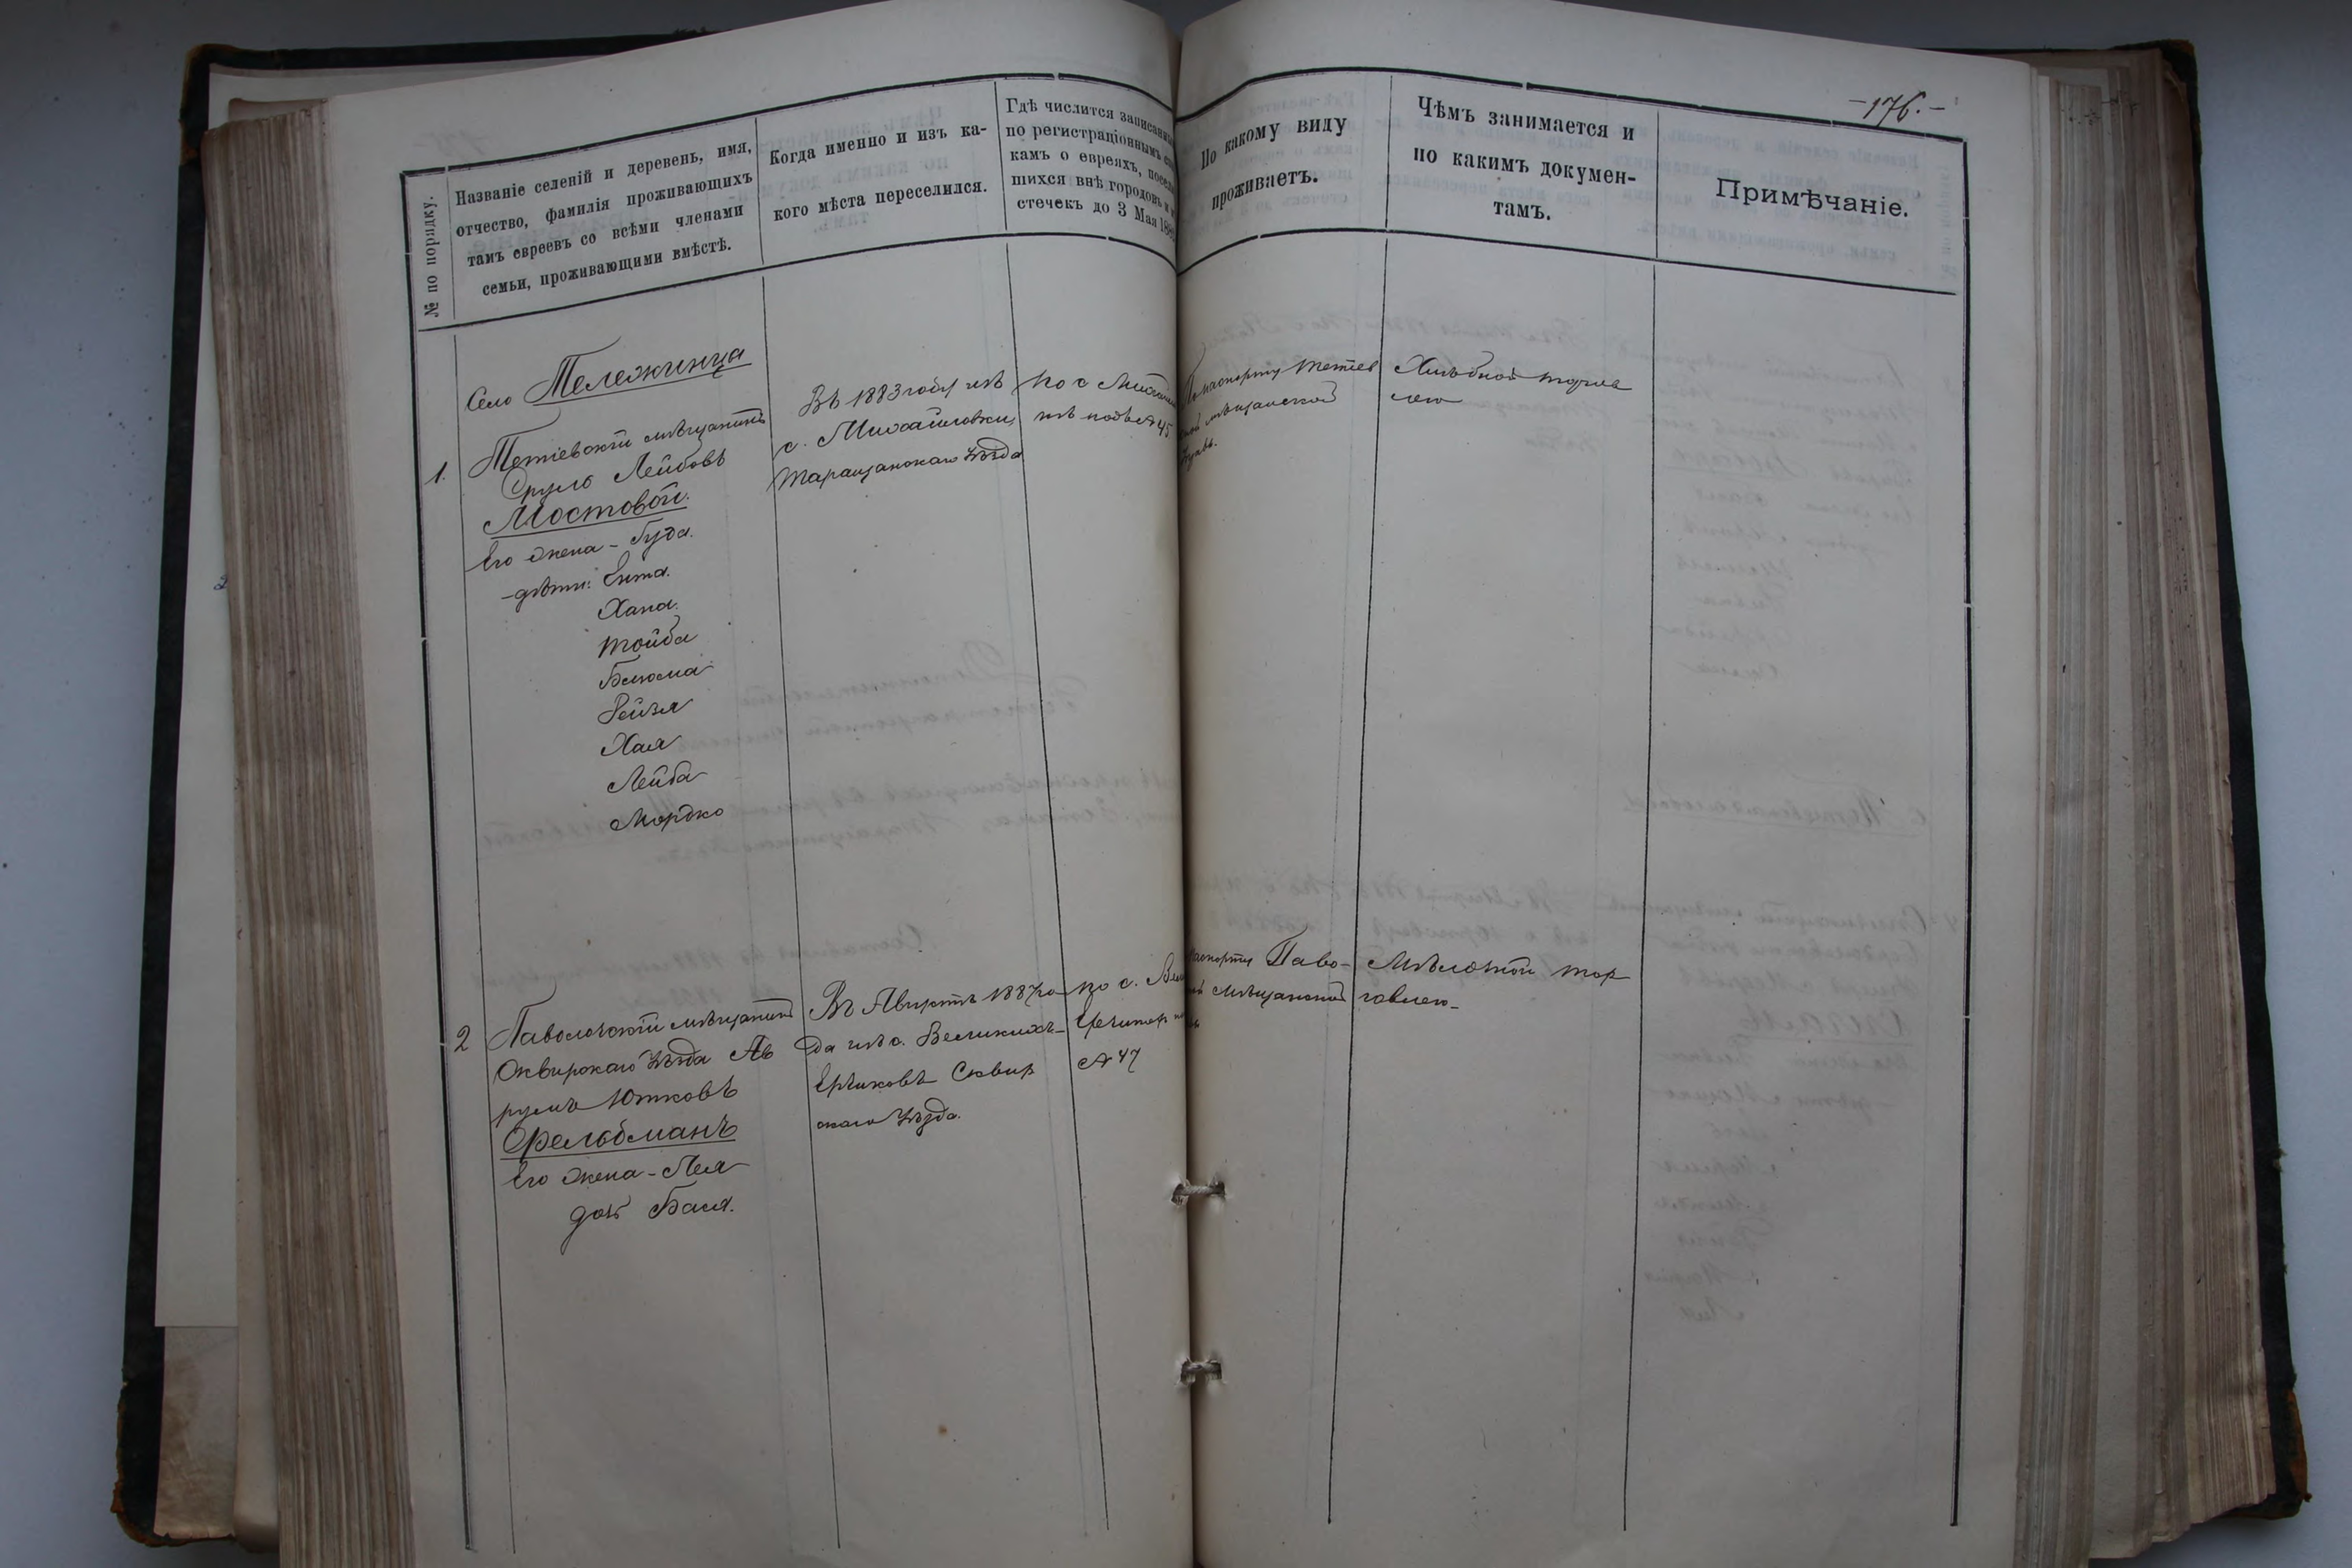 -176.-
№ по порядку.
Названіе селеній и деревень, имя,
отчество, фамилія проживающихъ
тамъ евреевъ со всѣми членами
семьи, проживающими вмѣстѣ.
Когда именно и изъ ка-
кого мѣста переселился.
Гдѣ числится
по регистраціоннымъ
камъ о евреяхъ,
шихся внѣ городовъ и
стечекъ до 3 Мая
По какому виду
проживаетъ.
Чѣмъ занимается и
по какимъ докумен-
тамъ.
Примѣчаніе.
Село Тележинца
1. Тетіевскій мѣщанинъ
Сруль Лейбовъ
Мостовой.
Его жена - Гуда.
-дѣти: Ента.
Хана.
Тойба
Блюма
Рейзя
Хая
Лейба
Мордко
Въ 1883 году изъ
с. Михайловки,
Таращанскаго Уѣзда
по с.
подъ №45
паспорту Тетіев
мѣщанской
Хлѣбной торгов
лею
2 Паволочскій мѣщанинъ
Сквирскаго Уѣзда Ав
румъ Ютковъ
Фельдманъ
Его жена - Лея
доч Бася.
Въ Августѣ 1887 го-
да изъ с. Великихъ-
Ерчиковъ Сквир
скаго Уѣзда.
по с.
№ 47
Паво-
мѣщанской
Мѣлочной тор
говлею-